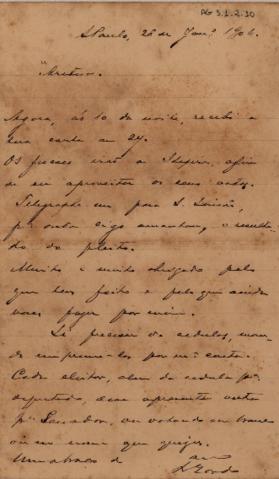 AG 3.1.2.30
S. Paulo, 26 de Jan.º 1906.
Agora, ás 10 da noite, recebi a
sua carta de 24.
Os fiscaes irão a
de se aproveitar os seus votos.
Telegraphe-me para S. Simão,
p.ª onde sigo amanhan, o resulta-
do do pleito.
Muito e muito obrigado pelo
que tens feito e pelo que ainda
vaes fazer por mim.
Si precisar de cedulas, man-
de imprimil-as por m.ª conta.
Cada eleitor, alem da cedula p.ª
deputado, deve apresentar outra
p.ª Senador, ou votando em branco
ou no nome que quizer.
Um abraço do